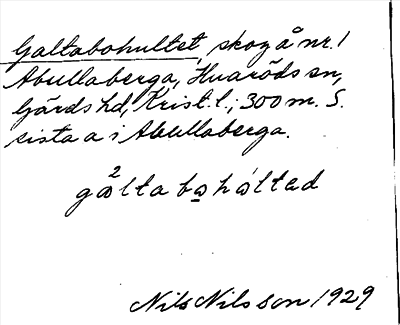 Galtabohultet, skog å nr. 1
Abullaberga, Huaröds sn,
Gärds hd, Krist. l.; 300 m. S.
sista a i Abullaberga.
2
galta bahaltad
Nils Nilsson 1929